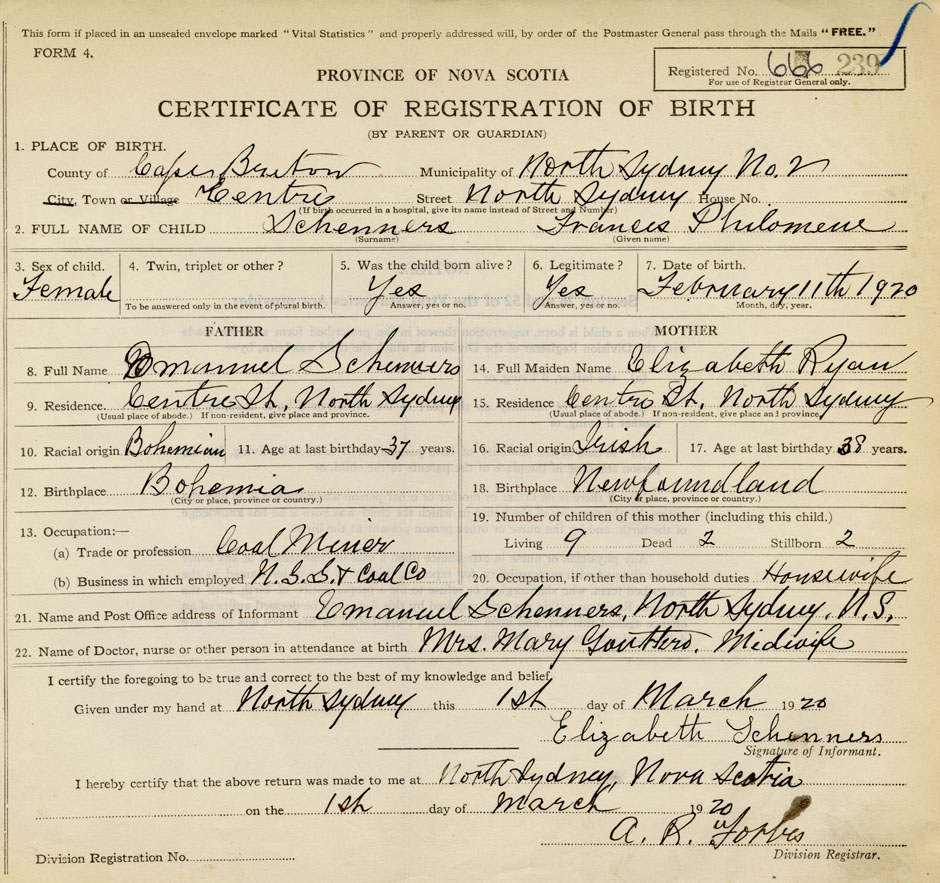 This form if placed in an unsealed envelope marked "Vital Statistics" and properly addressed will, by order of the Postmaster General pass through the Mails "FREE."
FORM 4.
Registered No. 666 239
For use of Registrar General only.
PROVINCE OF NOVA SCOTIA
CERTIFICATE OF REGISTRATION OF BIRTH
(BY PARENT OR GUARDIAN)
1. PLACE OF BIRTH.
County of Cape Breton Municipality of North Sydney No. 2
City, Town or Village Centre Street North Sydney House No.
(If birth occurred in a hospital, give its name instead of Street and Number)
2. FULL NAME OF CHILD Schenners Frances Philomene
(Surname) (Given name)
3. Sex of child. 4. Twin, triplet or other? 5. Was the child born alive? 6. Legitimate? 7. Date of birth.
Female Yes Yes February 11th 1920
To be answered only in the event of plural birth. Answer, yes or no. Answer, yes or no. Month, day, year.
FATHER MOTHER
8. Full Name Emanuel Schenners 14. Full Maiden Name Elizabeth Ryan
9. Residence. Centre St, North Sydney 15. Residence Centre St. North Sydney
(Usual place of abode.) If non-resident, give place and province. (Usual place of abode.) If non-resident, give place and province.
10. Racial origin Bohemian 11. Age at last birthday 37 years. 16. Racial origin Irish 17. Age at last birthday 38 years.
12. Birthplace Bohemia 18. Birthplace Newfoundland
(City or place, province or country.) (City or place, province or country.)
13. Occupation:— 19. Number of children of this mother (including this child.)
(a) Trade or profession Coal Miner Living 9 Dead 2 Stillborn 2
(b) Business in which employed N.S.S. & Coal Co 20. Occupation, if other than household duties Housewife
21. Name and Post Office address of Informant Emanuel Schenners, North Sydney, N.S.
22. Name of Doctor, nurse or other person in attendance at birth Mrs. Mary Midwife
I certify the foregoing to be true and correct to the best of my knowledge and belief.
Given under my hand at North Sydney this 1st day of March 1920
Elizabeth Schenners
Signature of Informant.
I hereby certify that the above return was made to me at North Sydney, Nova Scotia
on the 1st day of March 1920
A. R. Forbes
Division Registration No. Division Registrar.